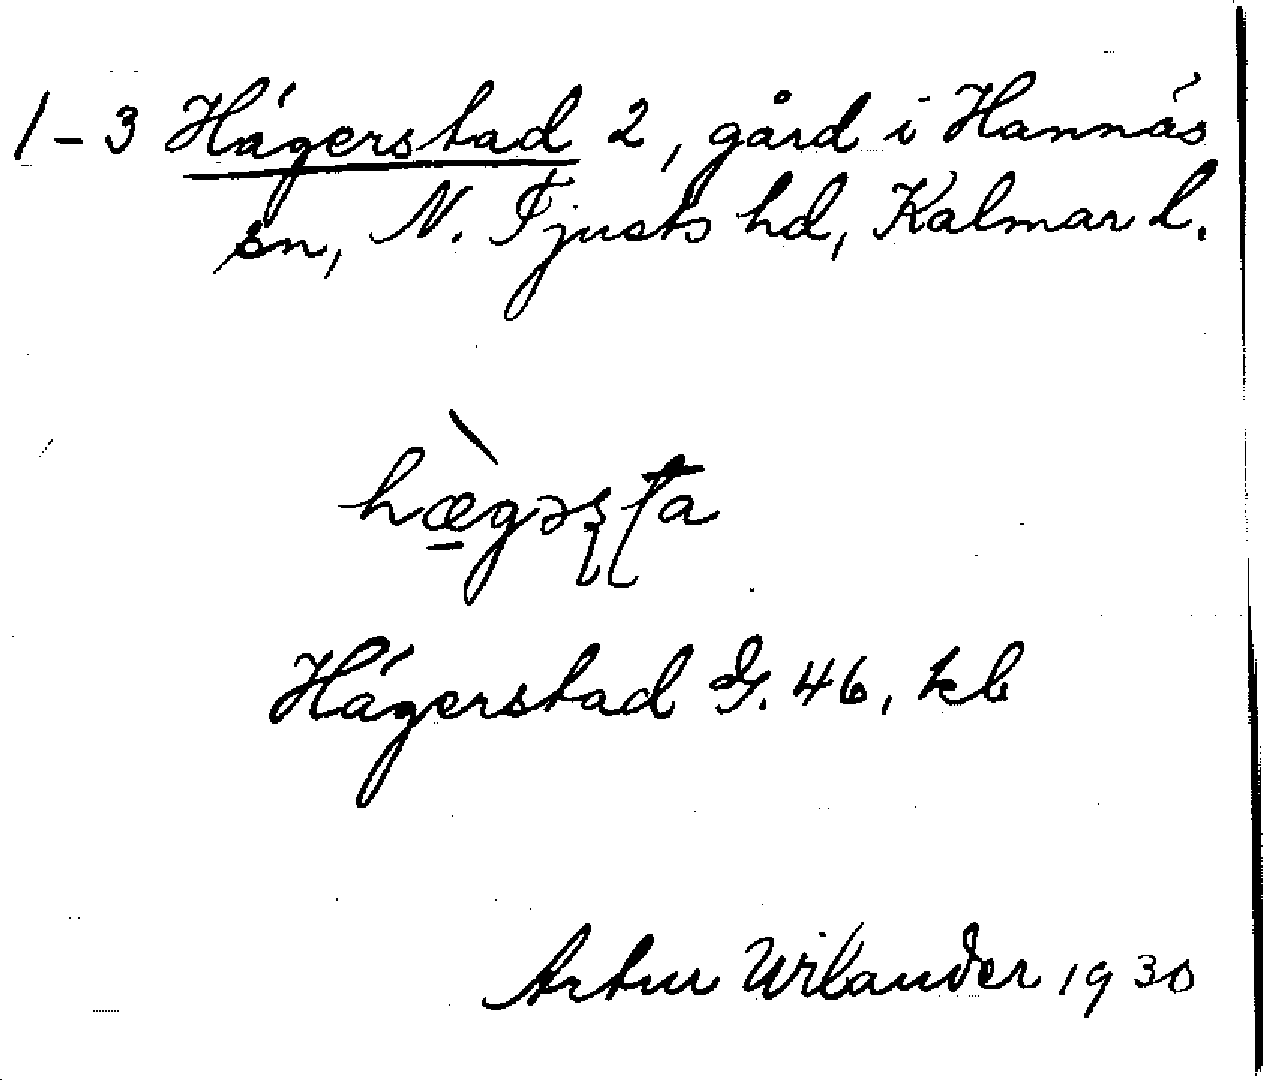 1-3 Hägerstad 2, gård i Hannäs
sn, N. Tjusts hd, Kalmar l.
hæ̱̀gəʂʈa
Hägerstad G. 46, kb
Artur Wilander 1930